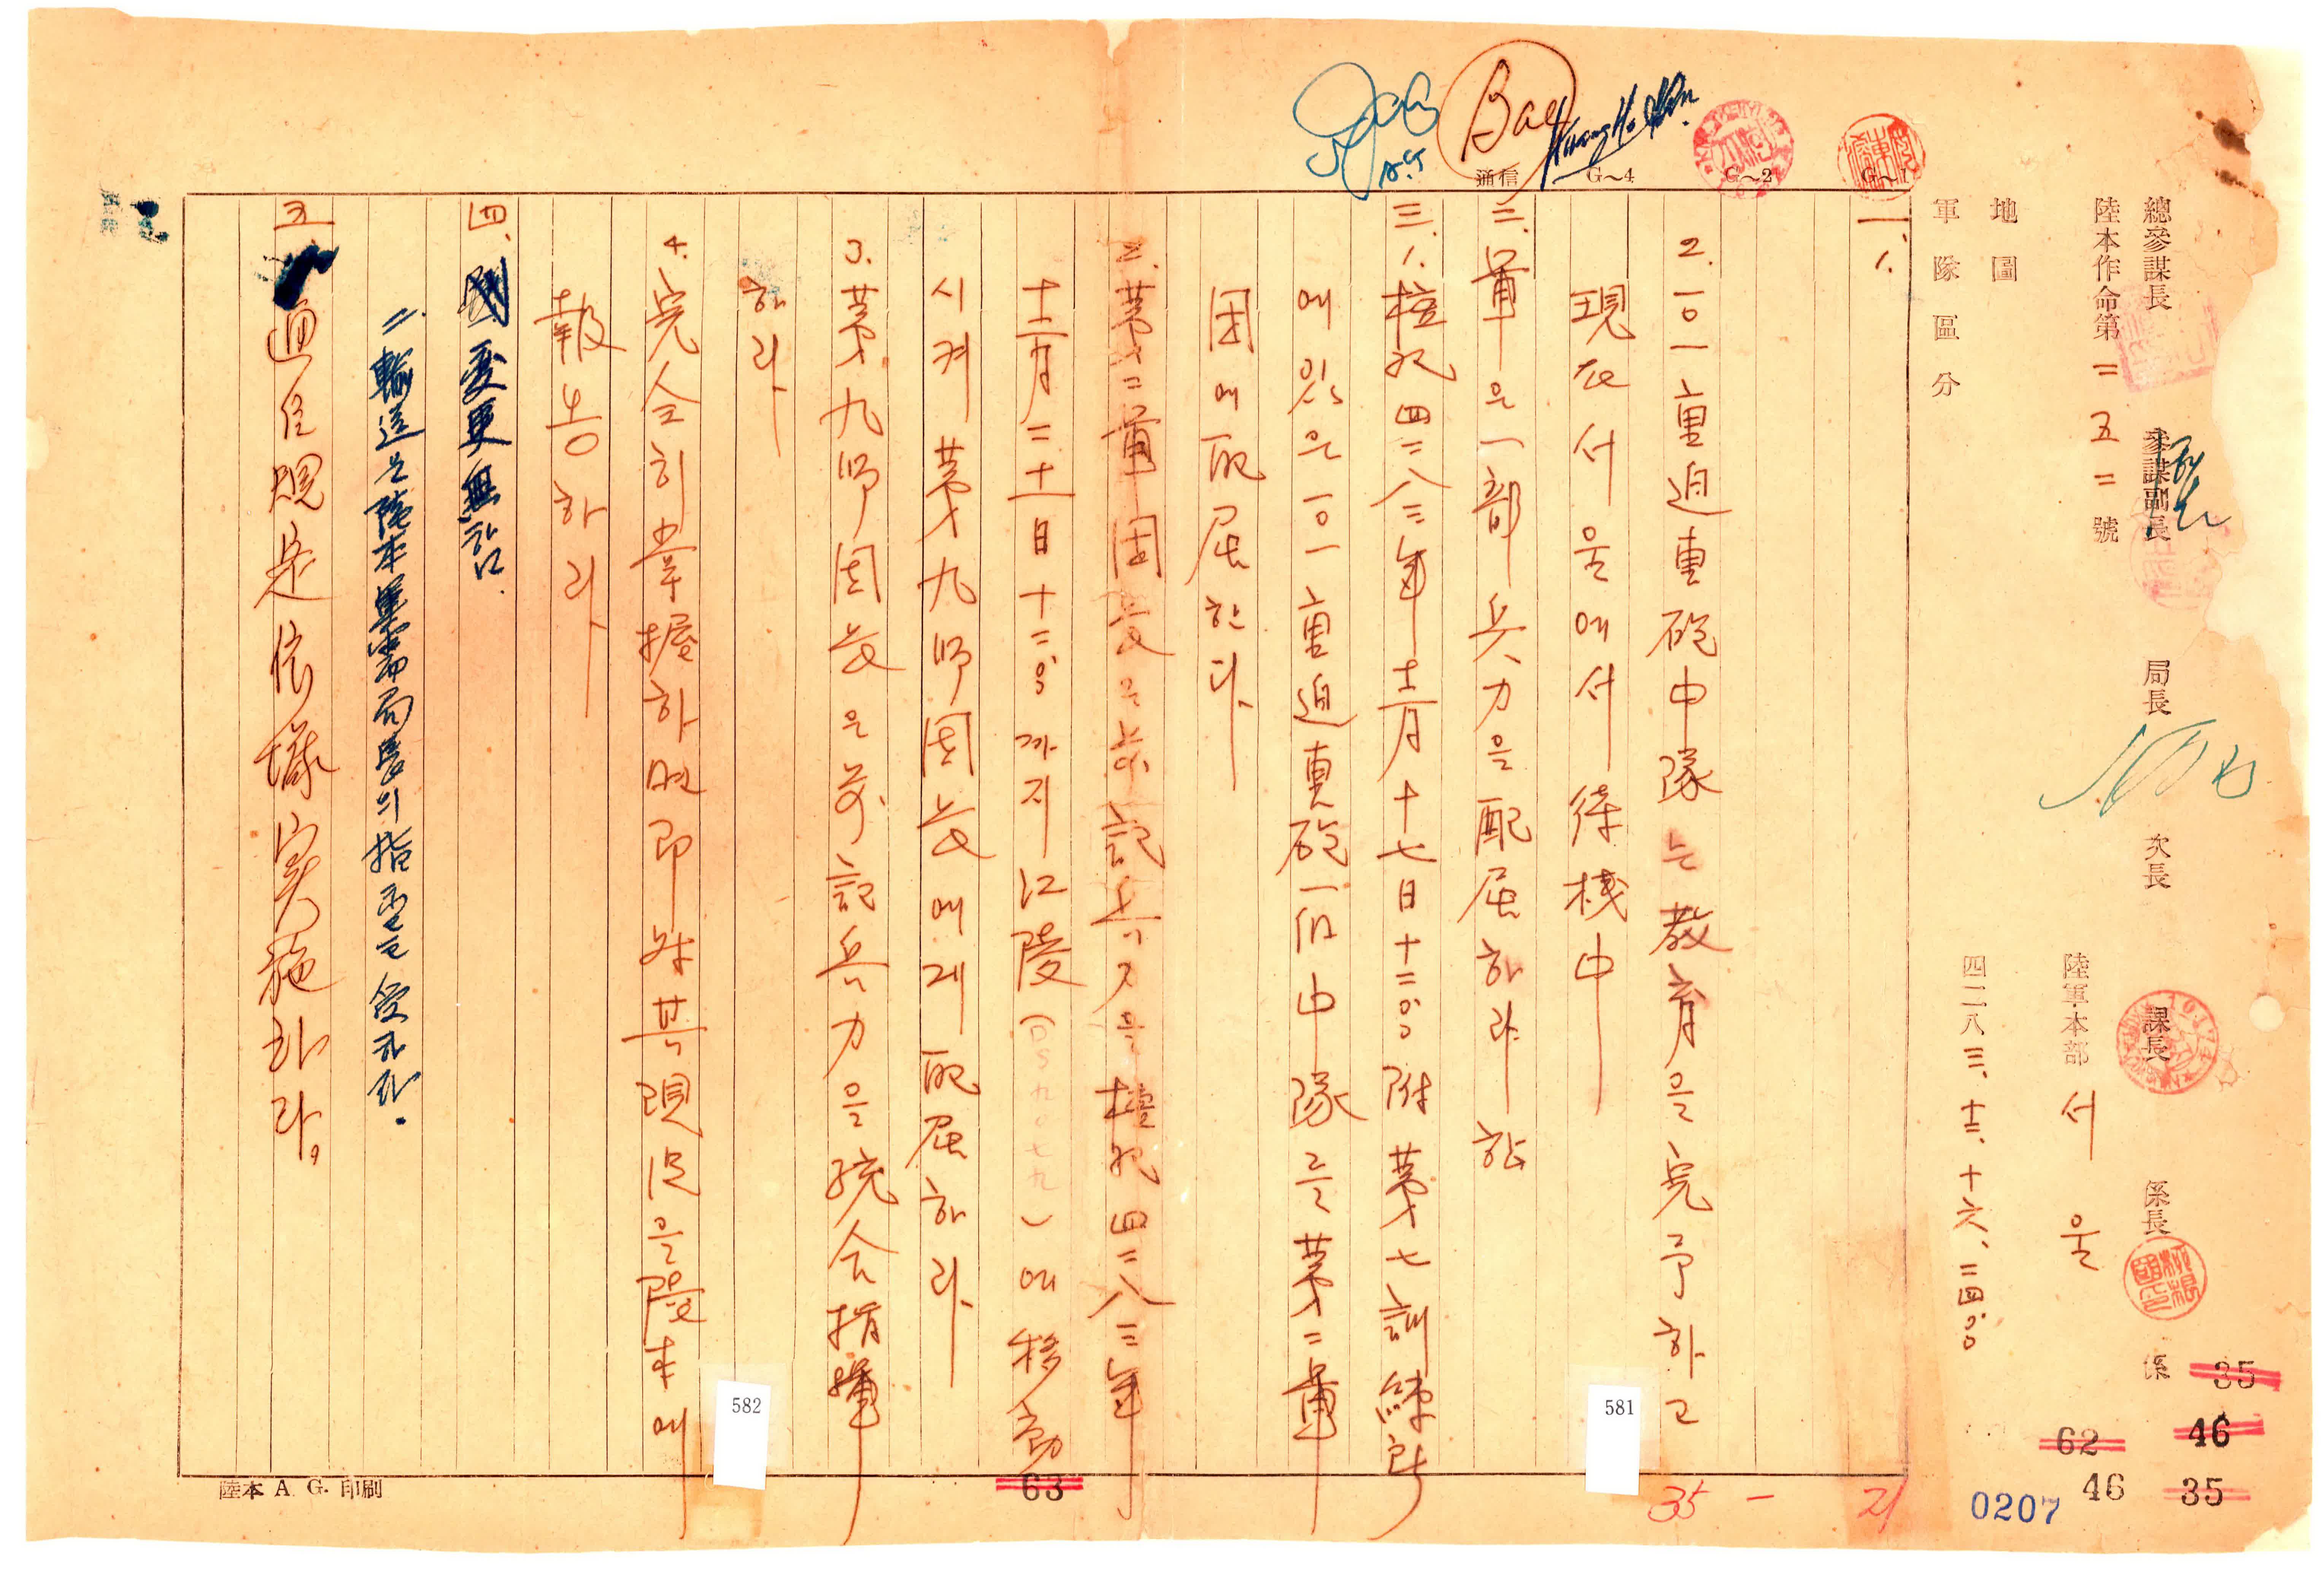 總參謀長 參謀副長 局長 次長 課長 係長 係
陸本作命第二五二號
陸軍本部 서울
四二八三、十二、十六、二四:〇〇
地圖
軍隊區分
G~1
G~2
G~4
通信
Bae
A.G
一、1.
2. 一〇一重迫重砲中隊는 敎育을 完了하고
現在 서울에서 待機中
二、軍은 一部 兵力을 配屈하라 함
三、1. 檀紀四二八三年 十二月 十七日 十二:〇〇 附 第七訓練所
에 있은 一〇一重迫重砲一個中隊를 第二軍
団에 配屈한다
2. 第二軍団長은 前記 兵力을 檀紀四二八三年
十二月二十一日 十二:〇〇 까지 江陵 (DS九〇七九) 에 移動
시켜 第九師団長에게 配屈하라
3. 第九師団長은 前記 兵力을 統合指揮
하라
4. 完全히 掌握하면 即時 其 現況을 陸本에
報告하라
四、變更無함.
2. 輸送은 陸本軍需局長의 指示를 受하라.
五、通信規定 依據 実施하라。
陸本 A. G. 印刷
581
582
63
35
46
62
46
35
0207
35 - 21